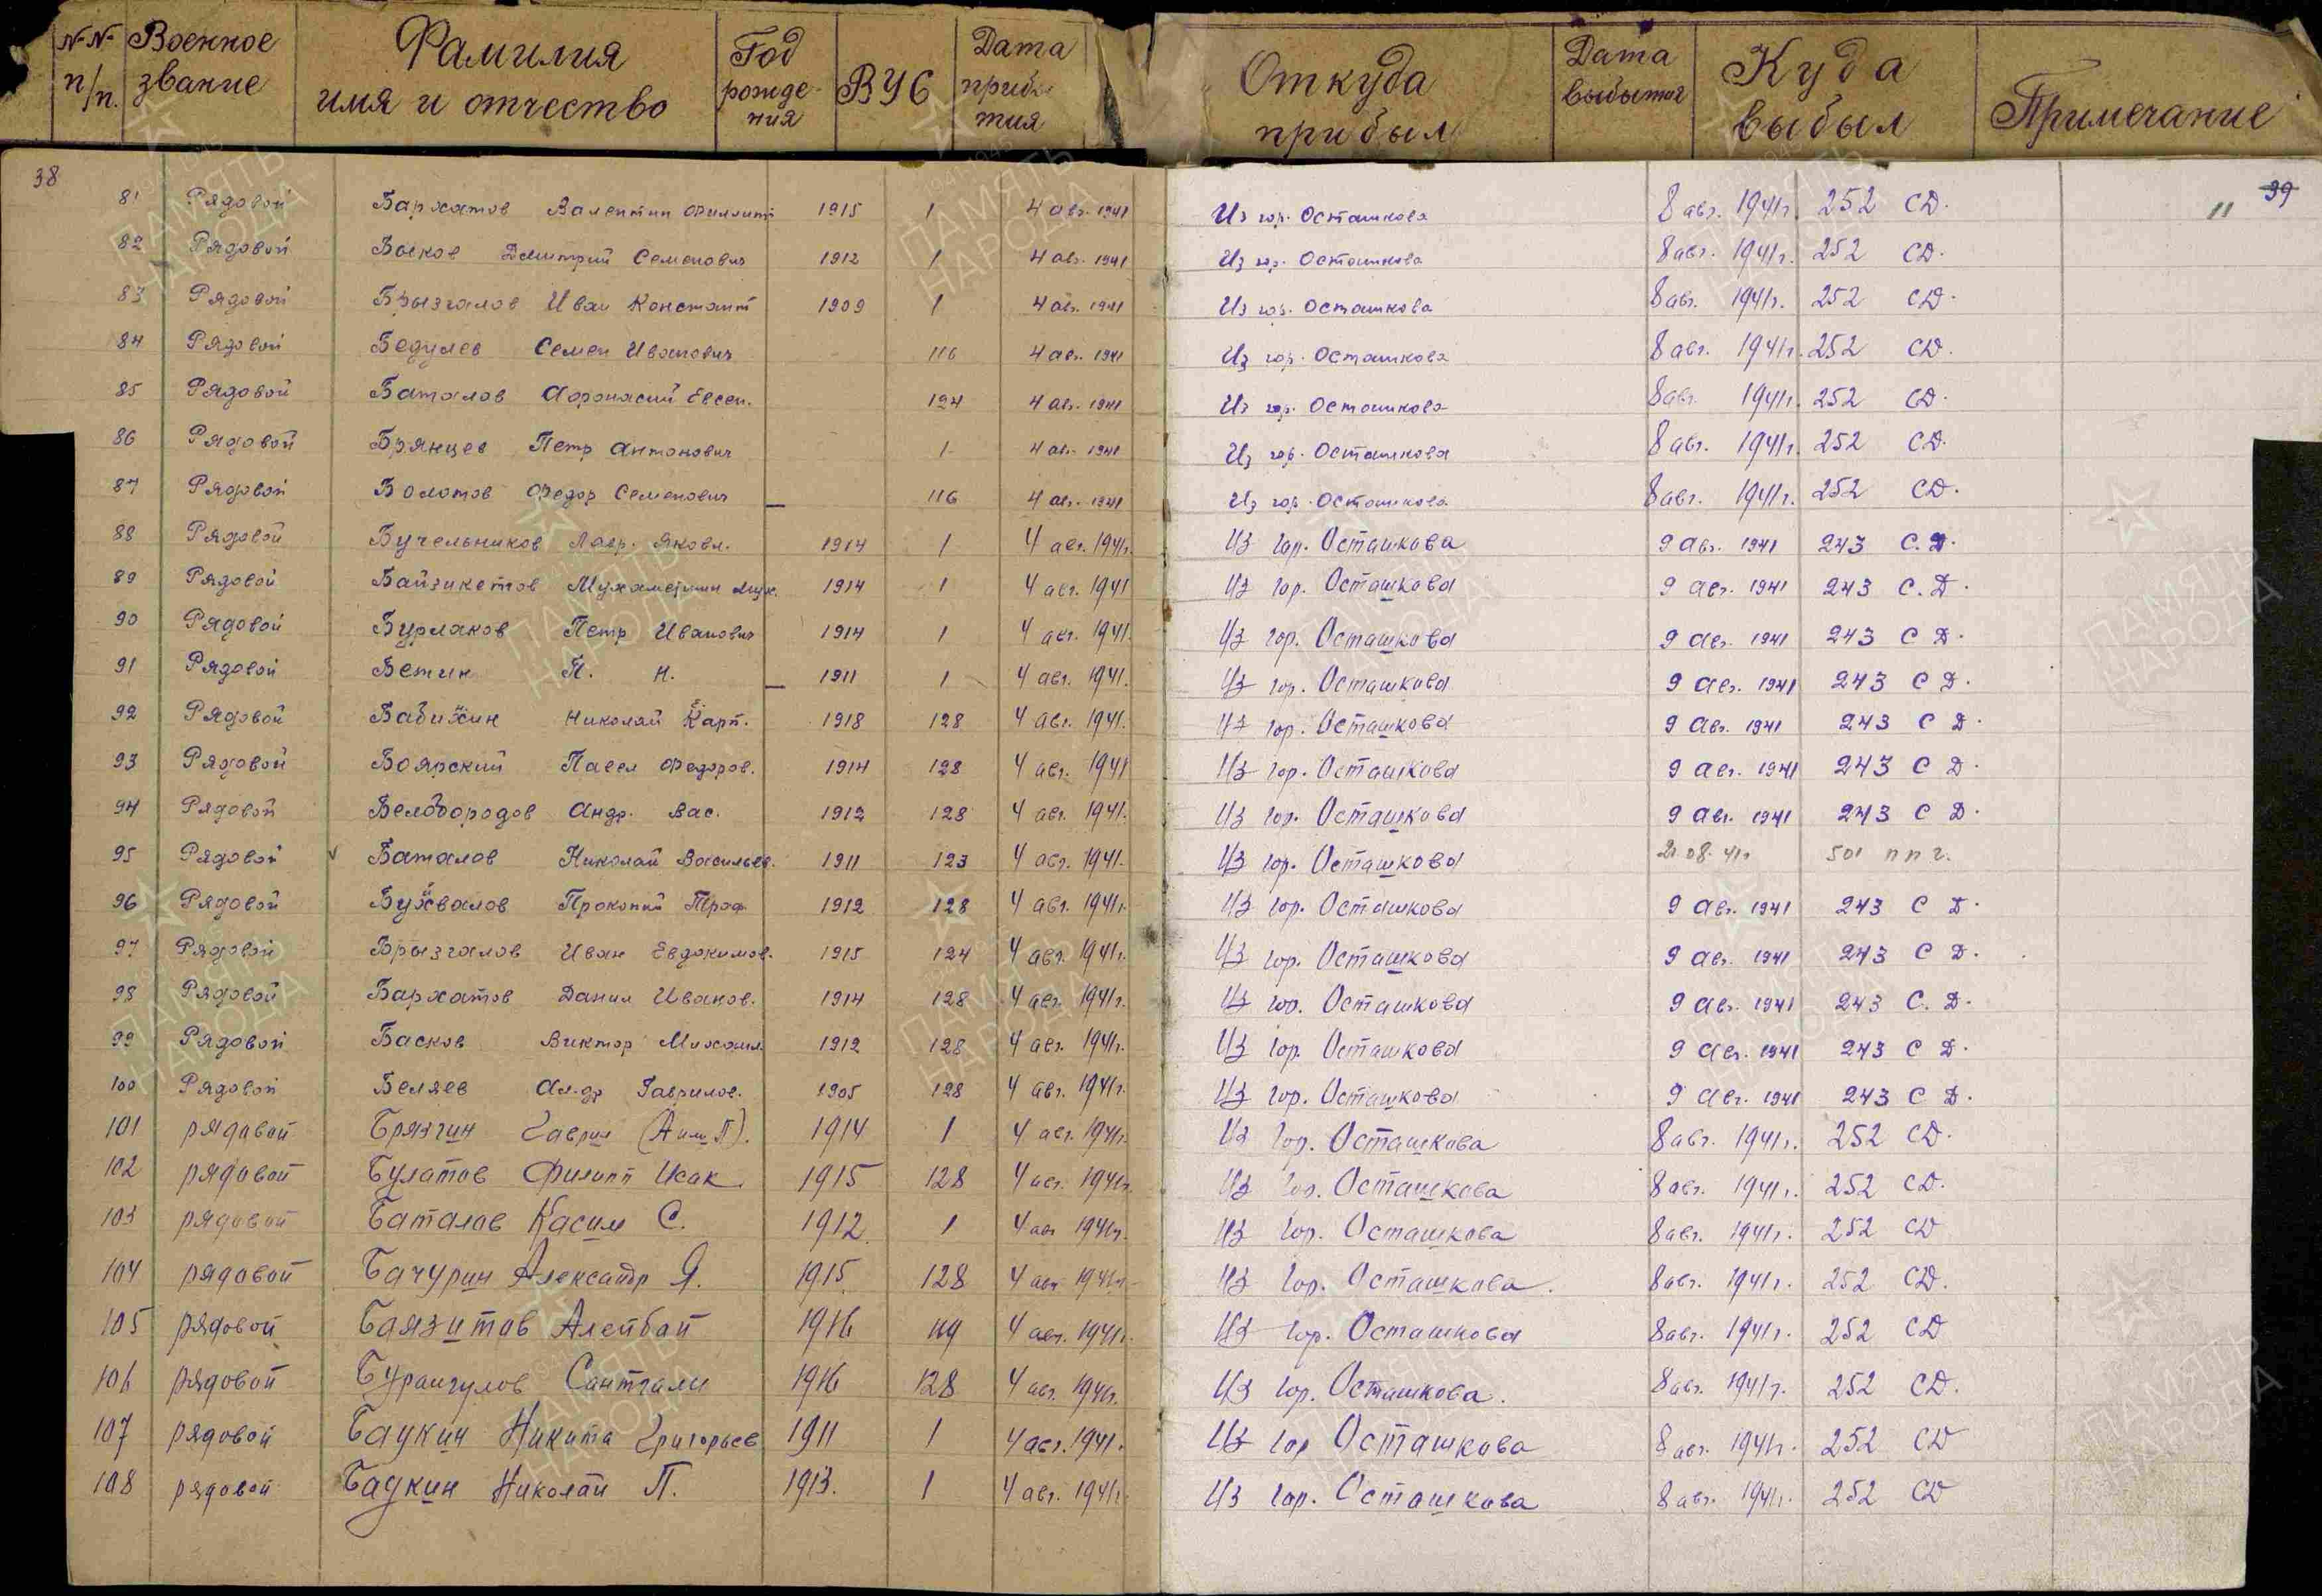 №№ п/п. Военное звание Фамилия имя и отчество Год рождения ВУС Дата прибытия Откуда прибыл Дата выбытия Куда выбыл Примечание
38 39
11
81 Рядовой Бархатов Валентин Филлипп 1915 1 4 авг. 1941 Из гор. Осташкова 8 авг. 1941г. 252 СД.
82 Рядовой Босков Дмитрий Семенович 1912 1 4 авг. 1941 Из гор. Осташкова 8 авг. 1941г. 252 СД.
83 Рядовой Брызгалов Иван Констант 1909 1 4 авг. 1941 Из гор. Осташкова 8 авг. 1941г. 252 СД.
84 Рядовой Бедулев Семен Иванович 116 4 авг. 1941 Из гор. Осташкова 8 авг. 1941г. 252 СД.
85 Рядовой Баталов Афонасий Евсеи. 124 4 авг. 1941 Из гор. Осташкова 8 авг. 1941г. 252 СД.
86 Рядовой Брянцев Петр Антонович 1 4 авг. 1941 Из гор. Осташкова 8 авг. 1941г. 252 СД.
87 Рядовой Болотов Федор Семенович 116 4 авг. 1941 Из гор. Осташкова 8 авг. 1941г. 252 СД.
88 Рядовой Бучельников Лавр. Яковл. 1914 1 4 авг. 1941г. Из гор. Осташкова 9 авг. 1941 243 С.Д.
89 Рядовой Байзикетов 1914 1 4 авг. 1941 Из гор. Осташкова 9 авг. 1941 243 С.Д.
90 Рядовой Бурлаков Петр Иванович 1914 1 4 авг. 1941. Из гор. Осташкова 9 авг. 1941 243 С Д.
91 Рядовой Бетин П. Н. 1911 1 4 авг. 1941. Из гор. Осташкова 9 авг. 1941 243 С Д.
92 Рядовой Бабихин Николай Карп. 1918 128 4 авг. 1941. Из гор. Осташкова 9 авг. 1941 243 С Д.
93 Рядовой Боярский Павел Федоров. 1914 128 4 авг. 1941 Из гор. Осташкова 9 авг. 1941 243 С Д.
94 Рядовой Белобородов Андр. Вас. 1912 128 4 авг. 1941. Из гор. Осташкова 9 авг. 1941 243 С Д.
95 Рядовой Баталов Николай Васильев. 1911 123 4 авг. 1941. Из гор. Осташкова 21 08. 41г 501 ппг.
96 Рядовой Буйвалов Прокопий Троф. 1912 128 4 авг. 1941г. Из гор. Осташкова 9 авг. 1941 243 С Д.
97 Рядовой Брызгалов Иван Евдокимов. 1915 124 4 авг. 1941г. Из гор. Осташкова 9 авг. 1941 243 С Д.
98 Рядовой Бархатов Данил Иванов. 1914 128 4 авг. 1941г. Из гор. Осташкова 9 авг. 1941 243 С.Д.
99 Рядовой Басков Виктор Михаил. 1912 128 4 авг. 1941г. Из гор. Осташкова 9 авг. 1941 243 С Д.
100 Рядовой Беляев Ал-др Гаврилов. 1905 128 4 авг. 1941г. Из гор. Осташкова 9 авг. 1941 243 С Д.
101 рядовой Брязгин Гаврил 1914 1 4 авг. 1941г. Из гор. Осташкова 8 авг. 1941г. 252 СД.
102 рядовой Булатов Филипп Исак. 1915 128 4 авг. 1941г. Из гор. Осташкова 8 авг. 1941г. 252 СД.
103 рядовой Баталов Касим С. 1912 1 4 авг 1941г. Из гор. Осташкова 8 авг. 1941г. 252 СД
104 рядовой Бачурин Александр Я. 1915 128 4 авг 1941г. Из гор. Осташкова. 8 авг. 1941г. 252 СД.
105 рядовой Баязитов Алейбай 1916 119 4 авг. 1941г. Из гор. Осташкова 8 авг. 1941г. 252 СД
106 рядовой Бурангулов Сантгали 1916 128 4 авг. 1941г. Из гор. Осташкова. 8 авг. 1941г. 252 СД.
107 рядовой Баукин Никита Григорьев 1911 1 4 авг. 1941. Из гор Осташкова 8 авг. 1941г. 252 СД
108 рядовой Баукин Николай П. 1913. 1 4 авг. 1941г. Из гор. Осташкова 8 авг. 1941г. 252 СД